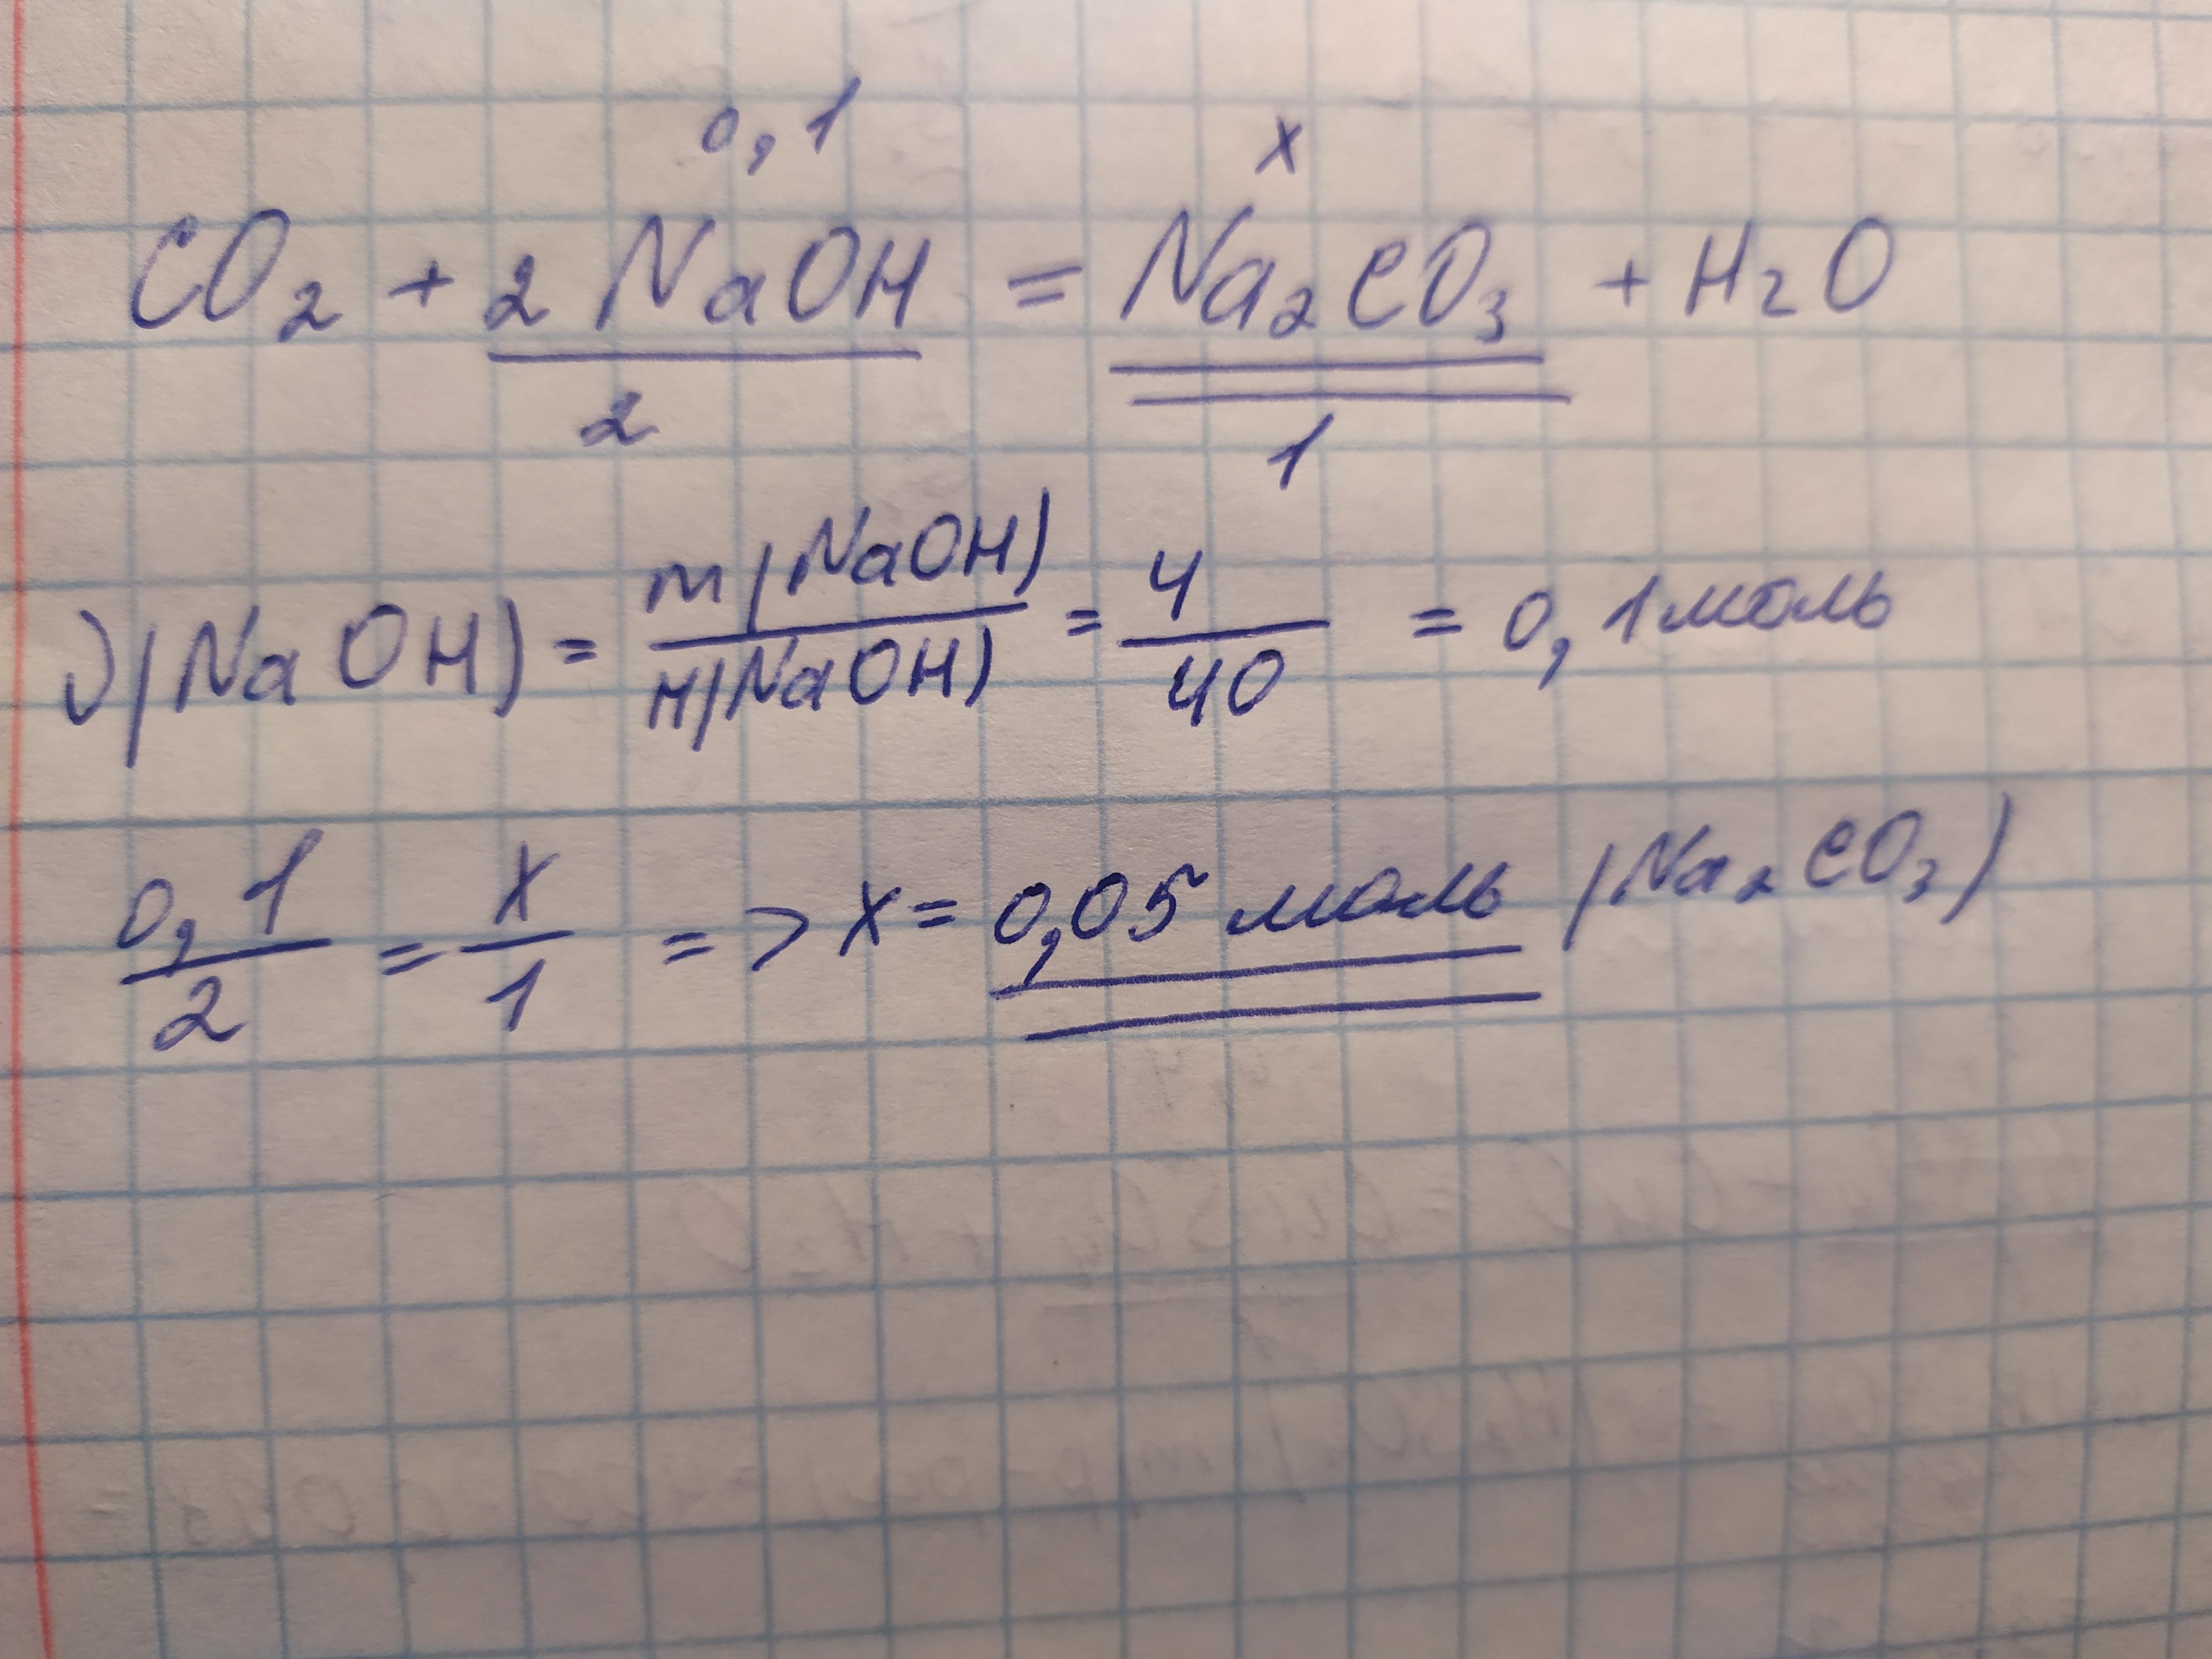 0,1 x
CO₂ + 2 NaOH = Na₂CO₃ + H₂O
2 1
ν(NaOH) = m(NaOH)/M(NaOH) = 4/40 = 0,1 моль
0,1/2 = x/1 => x = 0,05 моль (Na₂CO₃)